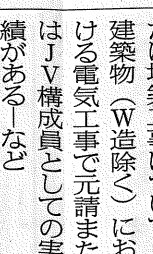 建築物（W造除く）にお
ける電気工事で元請また
はＪＶ構成員としての実
績がある―など